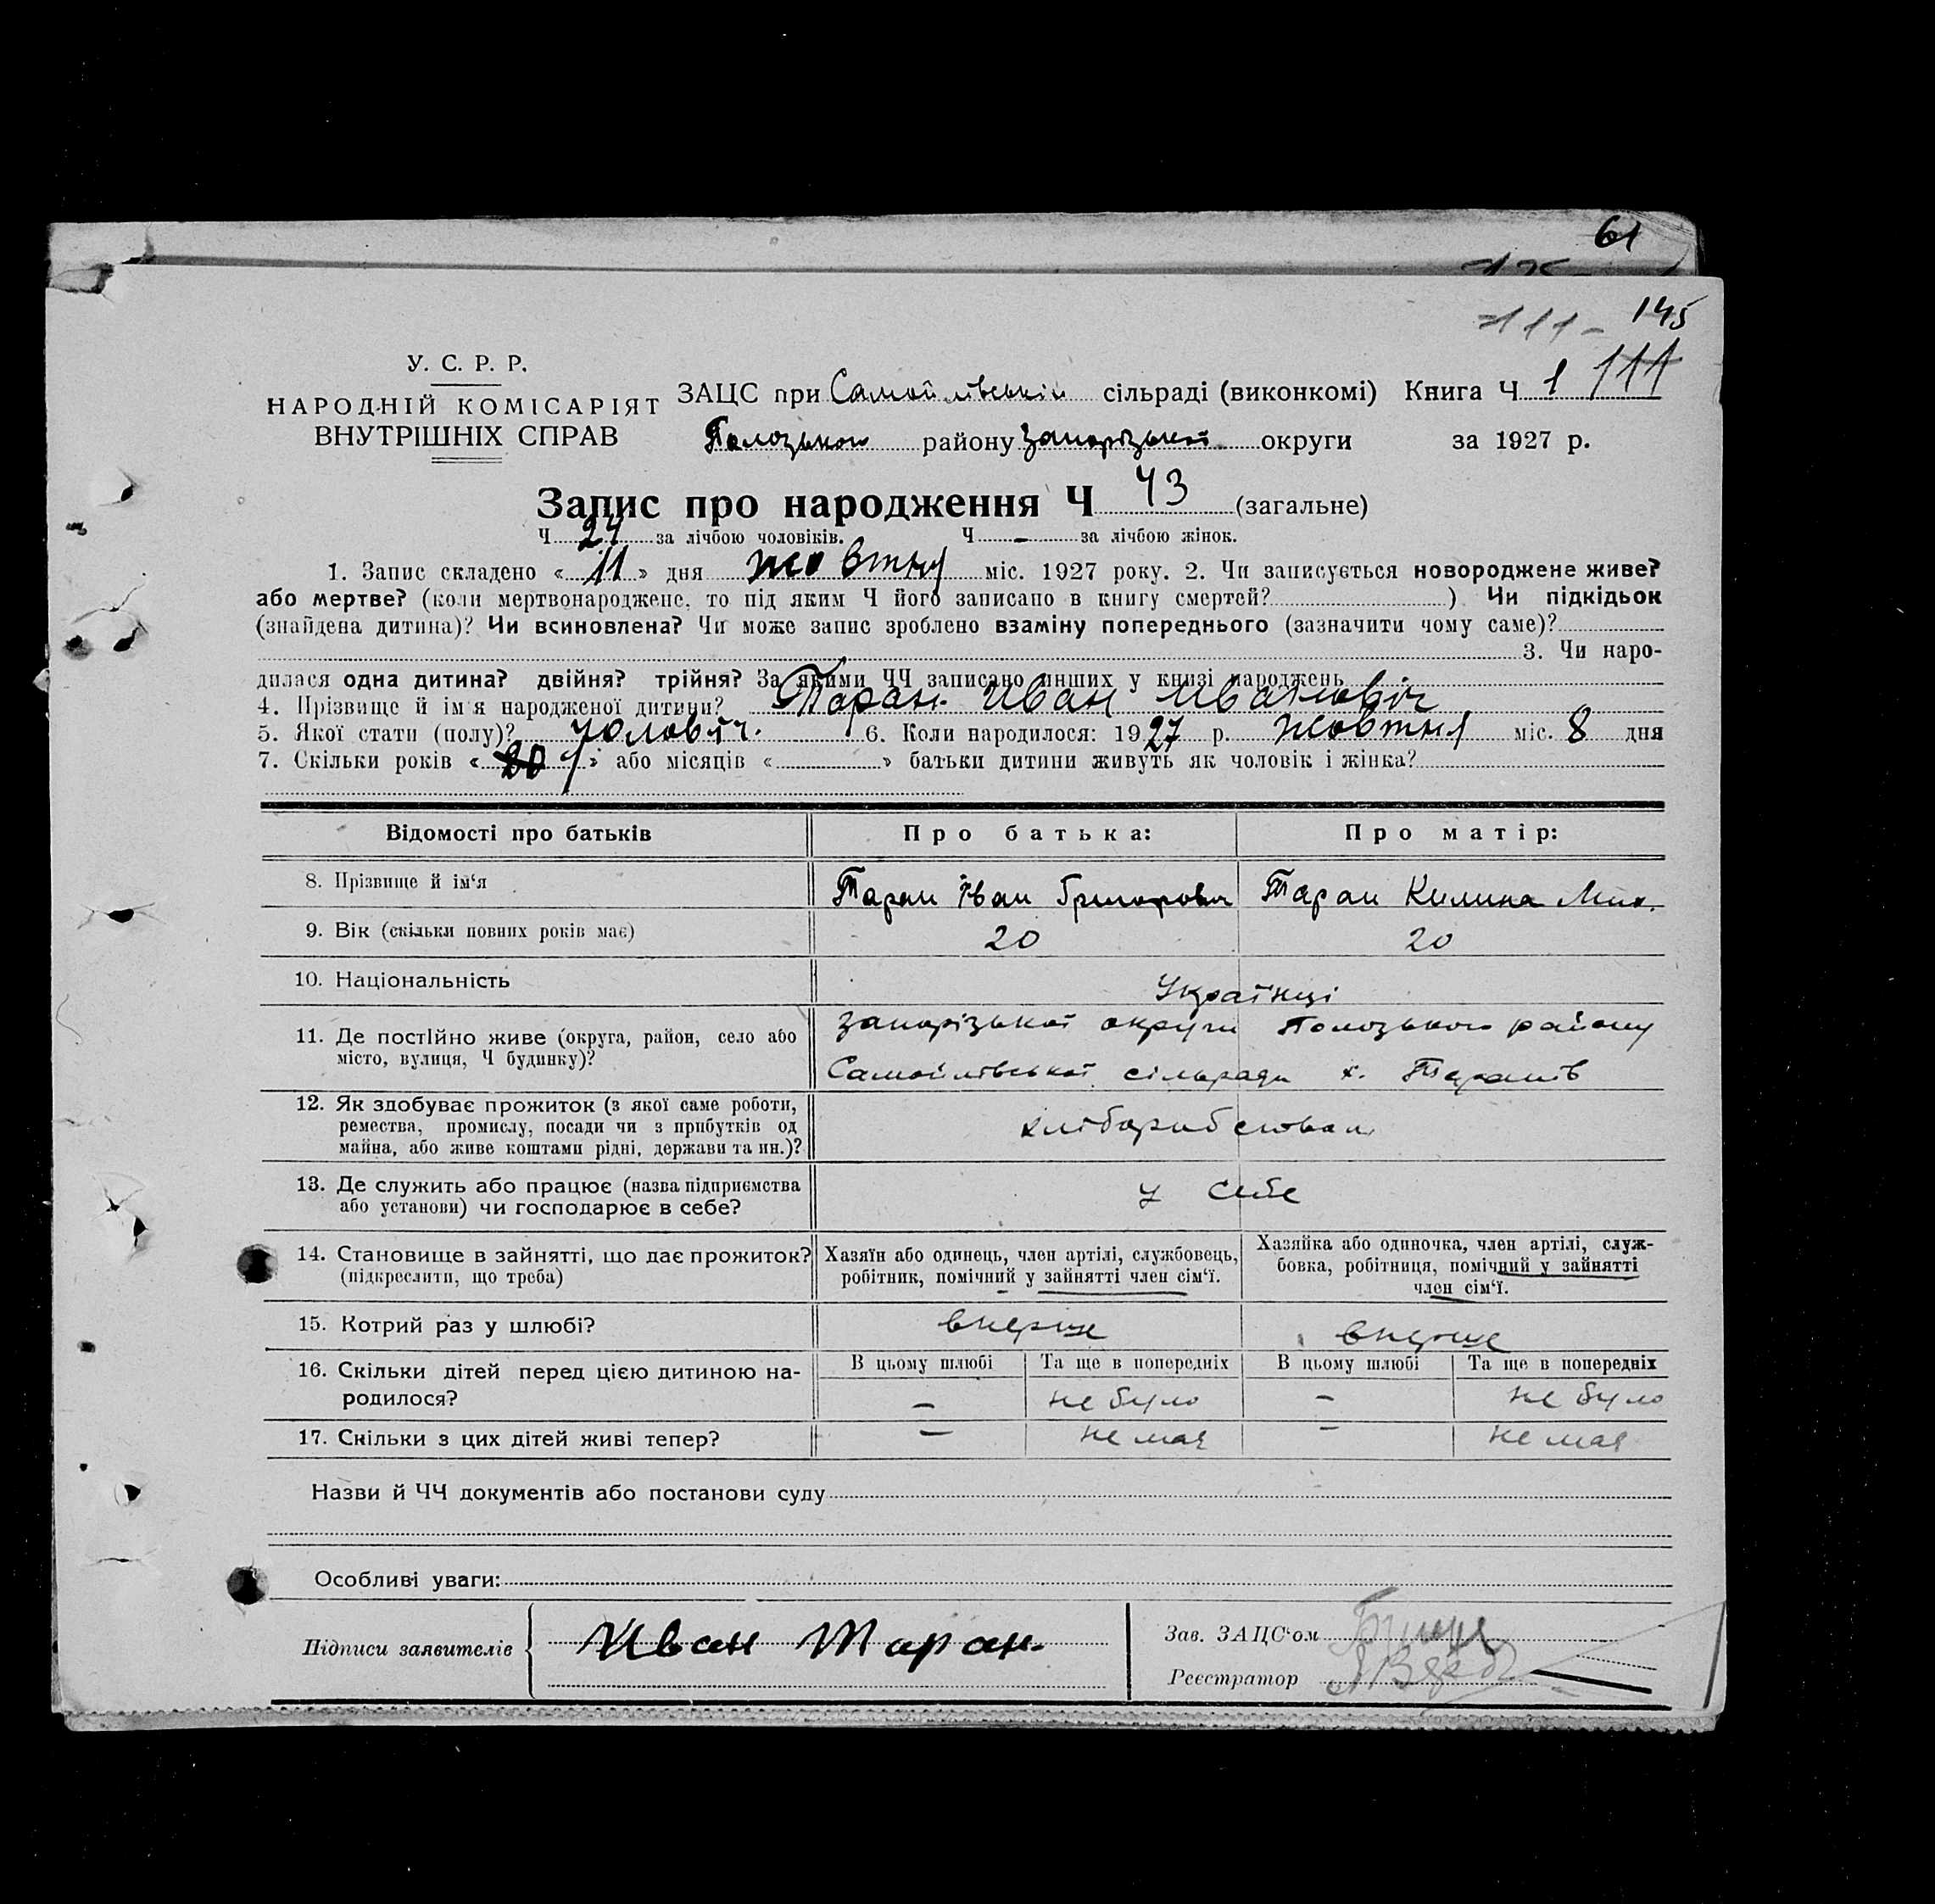 61
-111- 145
У. С. Р. Р.
НАРОДНІЙ КОМІСАРІЯТ
ВНУТРІШНІХ СПРАВ
ЗАЦС при Самойлівській сільраді (виконкомі) Книга Ч 1 111
Пологського району Запорізької округи за 1927 р.
Запис про народження Ч 43 (загальне)
Ч 24 за лічбою чоловіків. Ч - за лічбою жінок.
1. Запис складено «11» дня жовтня міс. 1927 року. 2. Чи записується новороджене живе?
або мертве? (коли мертвонароджене, то під яким Ч його записано в книгу смертей? ) Чи підкідьок
(знайдена дитина)? Чи всиновлена? Чи може запис зроблено взаміну попереднього (зазначити чому саме)?
3. Чи наро-
дилася одна дитина? двійня? трійня? За якими ЧЧ записано инших у книзі народжень
4. Прізвище й ім'я народженої дитини? Таран Иван Иванович
5. Якої стати (полу)? чоловіч. 6. Коли народилося: 1927 р. жовтня міс. 8 дня
7. Скільки років «20 1» або місяців « » батьки дитини живуть як чоловік і жінка?
Відомості про батьків Про батька: Про матір:
8. Прізвище й ім'я Таран Іван Григорович Таран Килина Мик.
9. Вік (скільки повних років має) 20 20
10. Національність Українці
11. Де постійно живе (округа, район, село або місто, вулиця, Ч будинку)?
Запорізької округи Пологського району
Самойлівської сільради х. Таранів
12. Як здобуває прожиток (з якої саме роботи,
ремества, промислу, посади чи з прибутків од
майна, або живе коштами рідні, держави та ин.)?
13. Де служить або працює (назва підприємства
або установи) чи господарює в себе? у себе
14. Становище в зайнятті, що дає прожиток?
(підкреслити, що треба)
Хазяїн або одинець, член артілі, службовець,
робітник, помічний у зайнятті член сім'ї.
Хазяйка або одиночка, член артілі, служ-
бовка, робітниця, помічний у зайнятті
член сім'ї.
15. Котрий раз у шлюбі? вперше вперше
16. Скільки дітей перед цією дитиною на-
родилося?
В цьому шлюбі Та ще в попередніх В цьому шлюбі Та ще в попередніх
- не було - не було
17. Скільки з цих дітей живі тепер? - не має - не має
Назви й ЧЧ документів або постанови суду
Особливі уваги:
Підписи заявителів Иван Таран
Зав. ЗАЦС'ом
Реєстратор